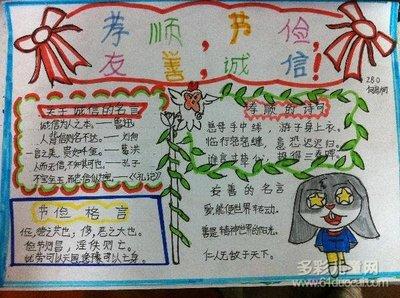 孝顺，节俭，
友善，诚信！
280
关于诚信的名言
诚信为人之本。——鲁迅
人背信则名不达。——刘向
一言之美，贵如千金。——葛洪
人而无信，不知其可也。——孔子
不宝金玉，而忠信以为宝。——《礼记》
孝顺的诗句
慈母手中线，游子身上衣。
临行密密缝，意恐迟迟归。
谁言寸草心，报得三春晖。
友善的名言
爱能使世界转动。
善是精神世界的阳光。
仁人无敌于天下。
节俭格言
俭，德之共也；侈，恶之大也。
俭节则昌，淫佚则亡。
忧劳可以兴国，逸豫可以亡身。
多彩儿童网
www.61duocai.com